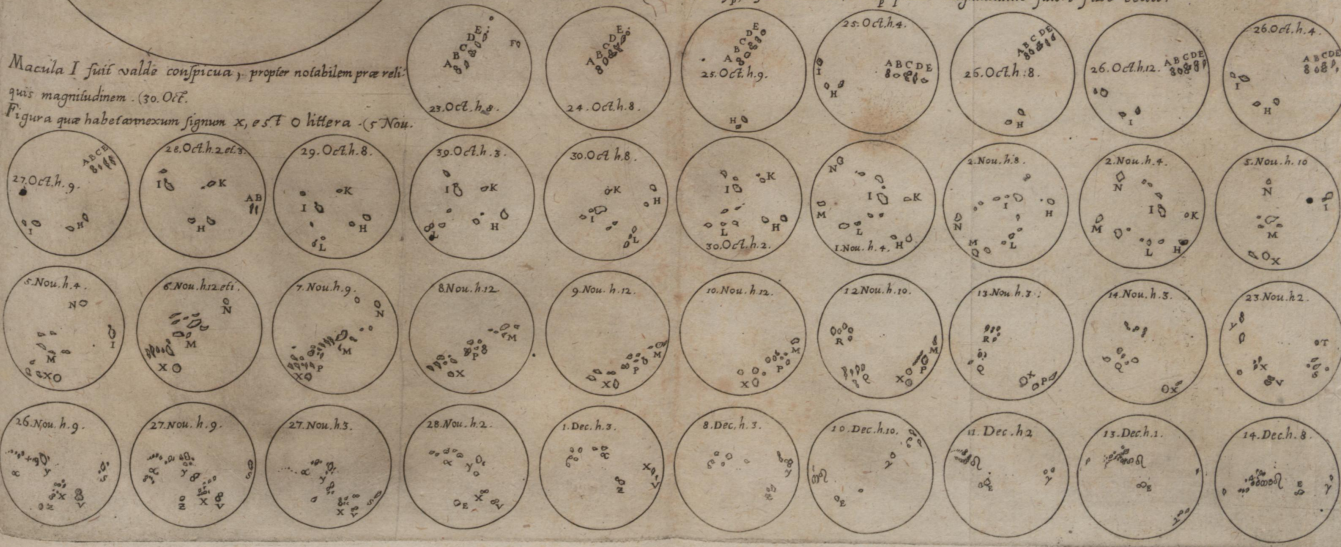 Macula I fuit valdè conspicua, propter notabilem præ reli:
quis magnitudinem. (30. Oct.
Figura quæ habet annexum signum x, est O littera. (5 Nov.
A B C D E
23. Oct. h. 8.
A B C D E
24. Oct. h. 8.
A B C D E
25. Oct. h. 9.
H
25. Oct. h. 4.
I
A B C D E
H
A B C D E
26. Oct. h. 8.
H
A B C D E
26. Oct. h. 12.
I
26. Oct. h. 4.
A B C D E
I
H
A B C E
27. Oct. h. 9.
I
H
28. Oct. h. 2 et 3.
I
K
A B
H
29. Oct. h. 8.
K
I
H
L
I
K
H
30. Oct. h. 8.
K
H
I
L
I
K
H
L
30. Oct. h. 2.
N
I
K
M
H
1. Nou. h. 4.
2. Nou. h. 8.
I
H
N
M
L
2. Nou. h. 4.
N
I
K
M
L
H
5. Nou. h. 10
N
I
M
X
5. Nou. h. 4.
N
I
M
X
6. Nou. h. 12 et 1.
N
M
X
7. Nou. h. 9.
N
M
P
X
8. Nou. h. 12
M
P
X
9. Nou. h. 12.
M
P
X
10. Nou. h. 12.
M
P
X
12. Nou. h. 10.
R
M
P
Q
X
13. Nou. h. 3:
R
Q
X
P
14. Nou. h. 3.
Q
X
23. Nou. h. 2.
Y
T
X
S
V
26. Nou. h. 9.
α
Y
S
X
Z
V
27. Nou. h. 9.
α
Y
S
Z
X
V
27. Nou. h. 3.
α
Y
X
V
S
28. Nou. h. 2.
α
Y
X
E
V
1. Dec. h. 3.
X
Z
8. Dec. h. 3.
Y
Z
10. Dec. h. 10.
Y
E
11. Dec. h 2
E
Y
13. Dec. h. 1.
E
14. Dec. h. 8.
E
Y